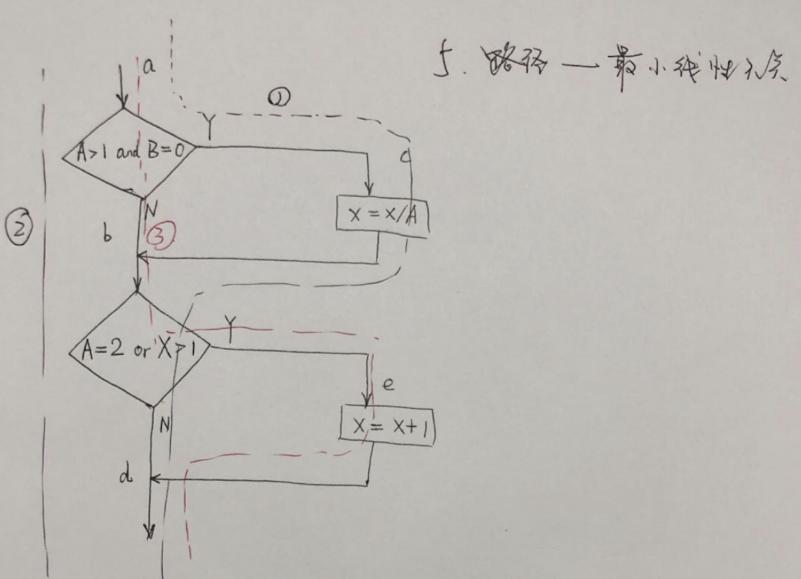 5. 路径 — 最小线性无关
①
a
Y
A>1 and B=0
c
N
X = X/A
②
b
③
Y
A=2 or X>1
e
N
X = X+1
d